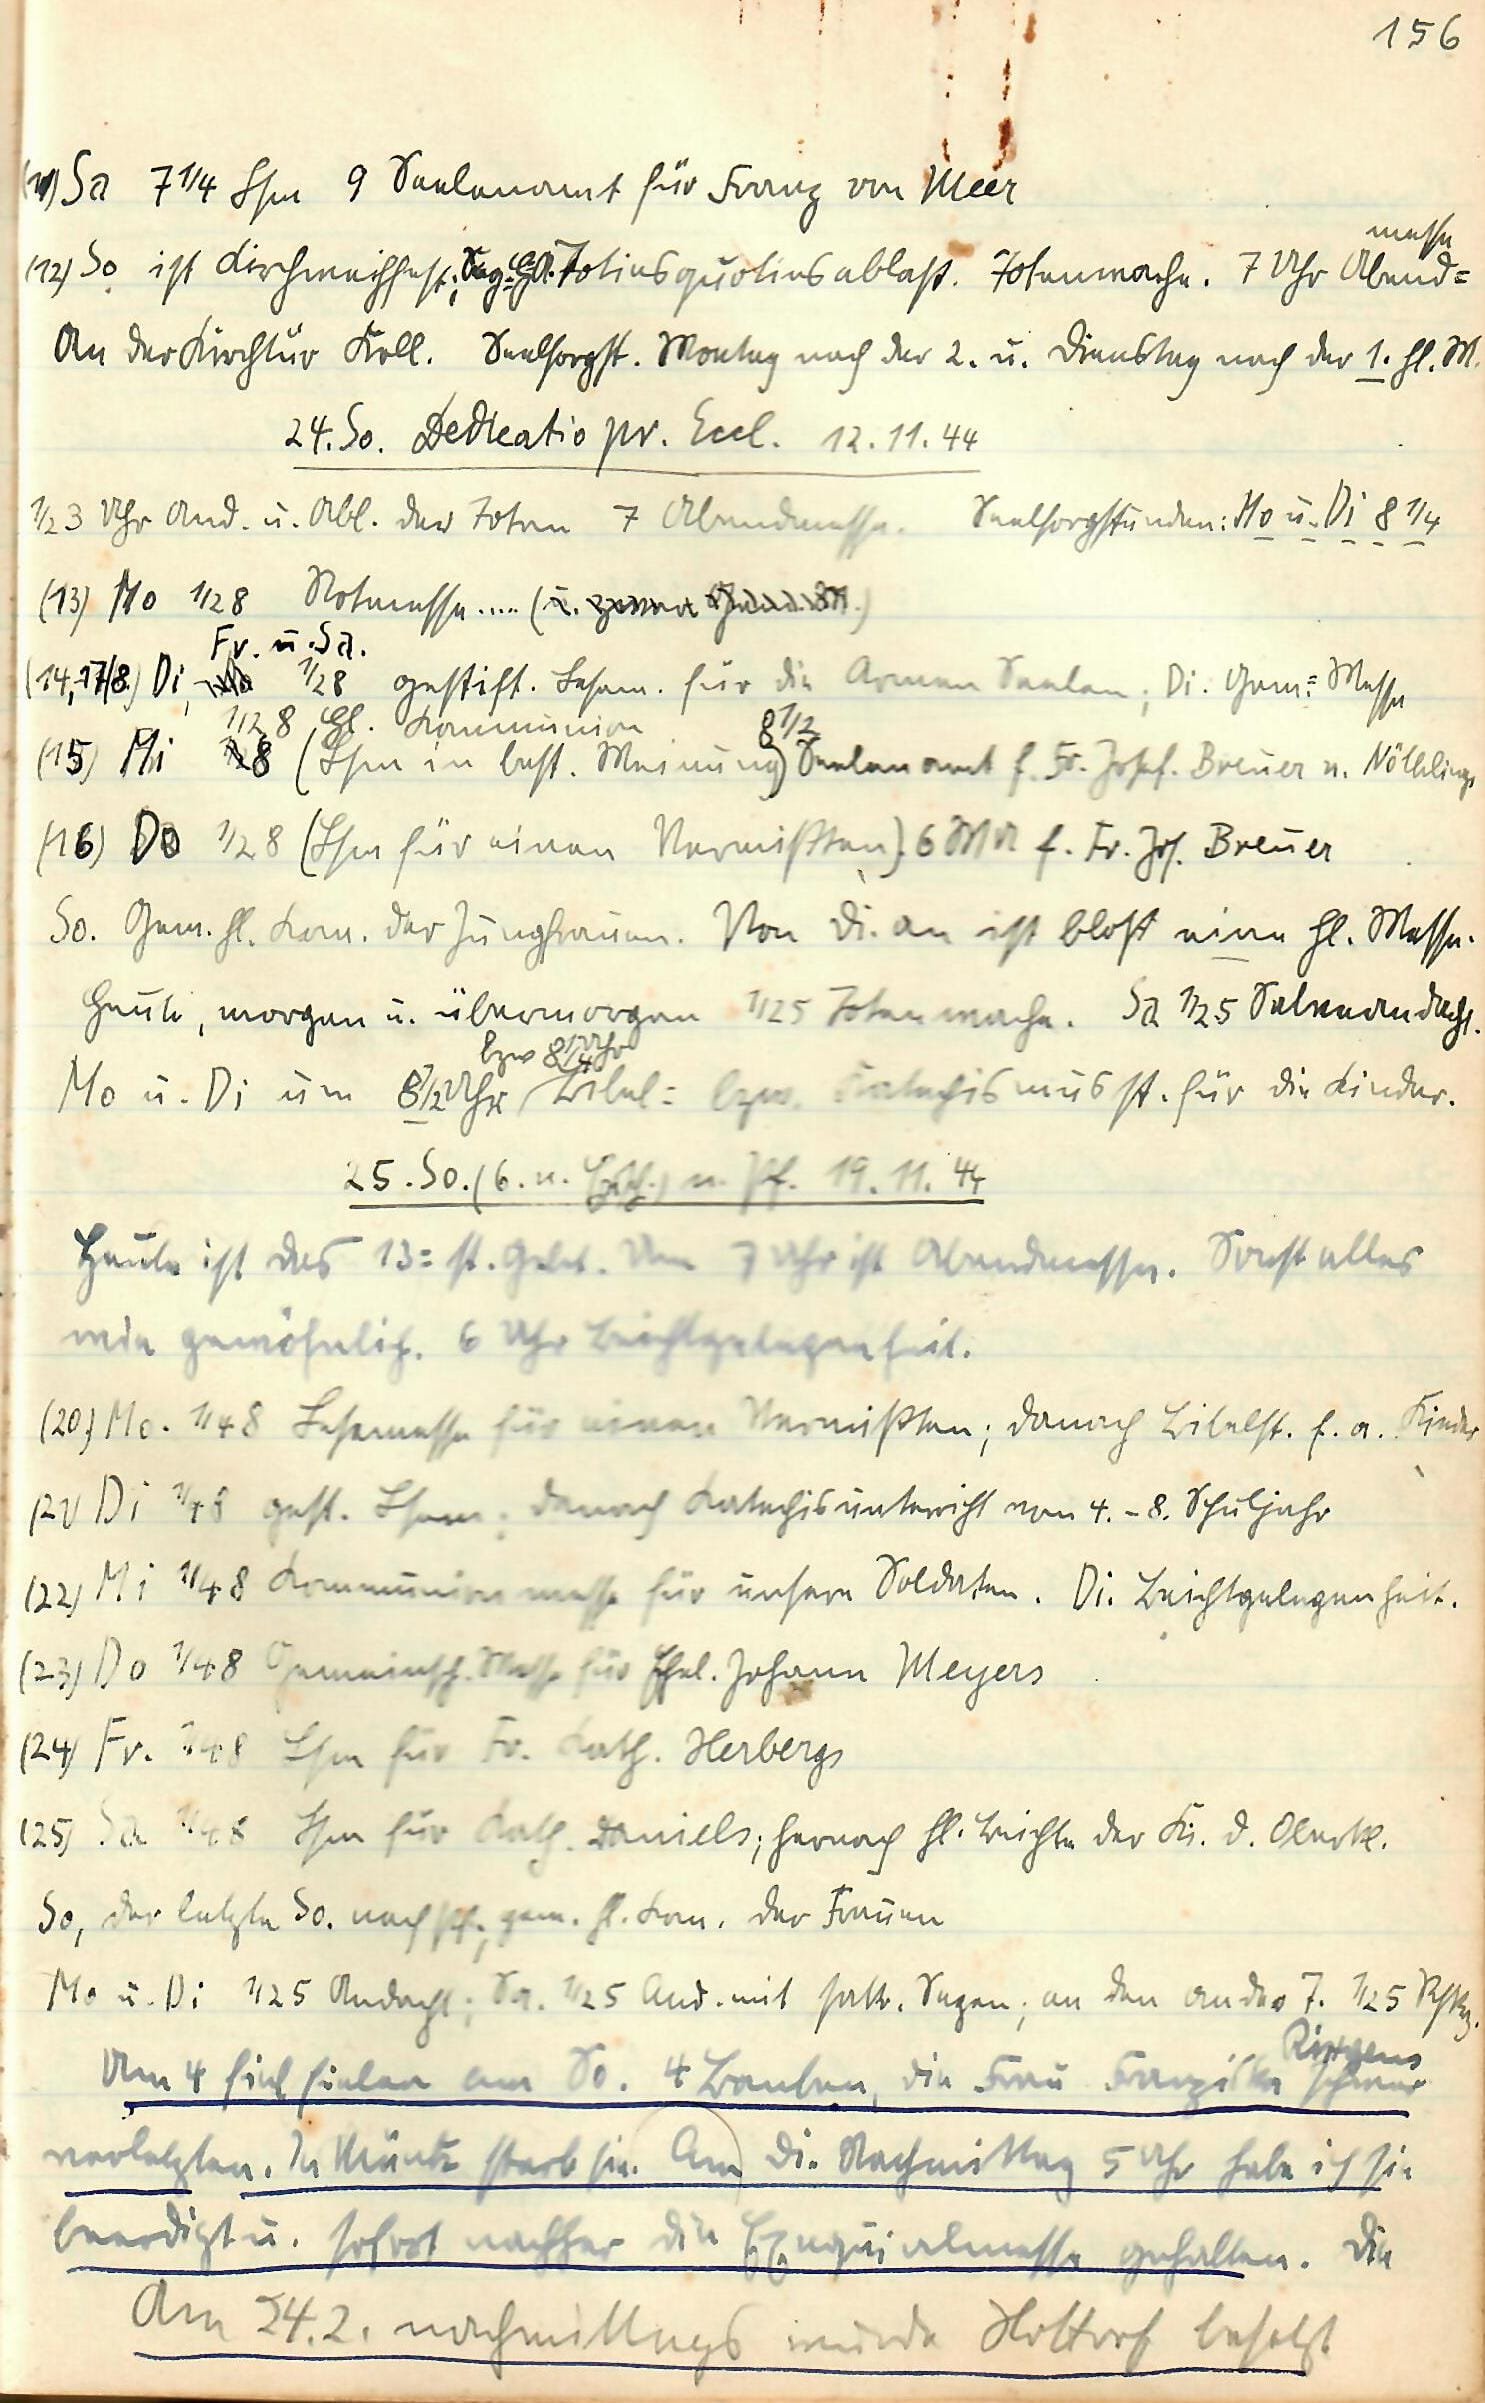 156
(11) Sa 7 1/4 Lsm 9 Seelenamt für Franz von Meer
messe
(12) So ist Kirchweihfest; Totiesquotiesablaß. Totenwache. 7 Uhr Abend=
An der Kirchtür Koll. Seelsorgst. Montag nach der 2. u. Dienstag nach der 1. hl. M.
24. So. Dedicatio pr. Eccl. 12.11.44
1/2 3 Uhr And. u. Abl. der Toten 7 Abendmesse. Seelsorgstunden: Mo u. Di 8 1/4
(13) Mo 1/2 8 Rotmesse.....
Fr. u. Sa.
(14, 17/8.) Di, 1/2 8 gestift. Lesem. für die Armen Seelen; Di. Gem.= Messe
1/2 8 hl. Kommunion 8 1/2
(15) Mi 8 (Lsm in best. Meinung) Seelenamt f. Fr. Josef. Breuer n.
(16) Do 1/2 8 (Lsm für einen Vermißten). 6 WA f. Fr. Jos. Breuer
So. Gem. hl. Kom. der Jungfrauen. Von Di. an ist bloß eine hl. Messe.
Heute, morgen u. übermorgen 1/2 5 Totenwache. Sa 1/2 5 Salveandacht.
bzw 8 1/4 Uhr
Mo u. Di um 8 1/2 Uhr Bibel= bzw. Katechismusst. für die Kinder.
25. So. (6. n. Epiph.) n. Pf. 19.11.44
Heute ist das 13= st. Gebet. Um 7 Uhr ist Abendmesse. Sonst alles
wie gewöhnlich. 6 Uhr Beichtgelegenheit.
(20) Mo. 1/4 8 Lesemesse für einen Vermißten; danach Bibelst. f. a. Kinder
(21) Di 1/4 8 gest. Lsm; danach Katechisunterricht vom 4. - 8. Schuljahr
(22) Mi 1/4 8 Kommunionmesse für unsere Soldaten. Di. Beichtgelegenheit.
(23) Do 1/4 8 Gemeinsch. Messe für Ehel. Johann Meyers
(24) Fr. 1/4 8 Lsm für Fr. Kath. Herbergs
(25) Sa 1/4 8 Lsm für Kath. Daniels; hernach hl. Beichte der Ki. d. Oberkl.
So, der letzte So. nach Pf., gem. hl. Kom. der Frauen
Mo u. Di 1/2 5 Andacht; Sa. 1/2 5 And. mit sakr. Segen; an den ander T. 1/2 5 Rskr.
Röttgens
Um 4 fielen am So. 4 Bomben, die Frau Franziska schwer
verletzten. In Müntz starb sie. Am Di. Nachmittag 5 Uhr habe ich sie
beerdigt u. sofort nachher die Exequialmesse gehalten. Die
Am 24.2. nachmittags wurde Hottorf besetzt